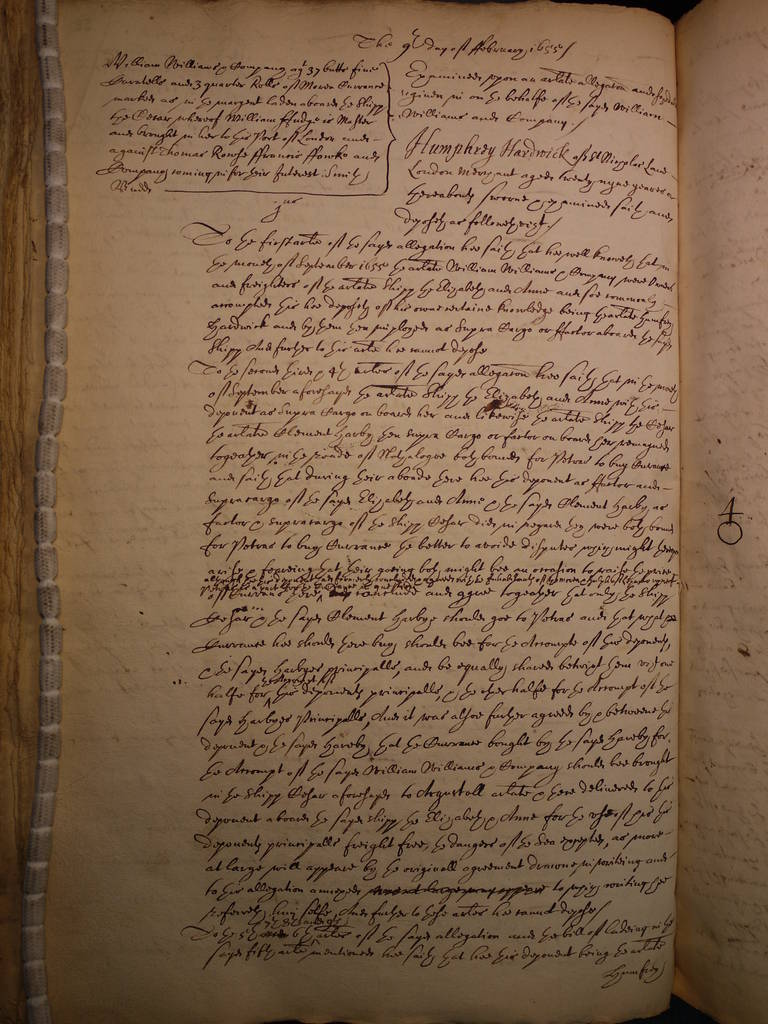 The 9th day of ffebruary 1655 /
William Williams & Company agt 37 butts fine
Caratells and 3 quarter Rolls of Morea Currance
marked as in the margent laden aboard the Shipp
the Cesar whereof William ffudge is Master
and brought in her to this Port of London and
against Thomas Rowse ffrancis ffowke and
Company coming in for their Interest. Smith
Budd
Examined upon an arlate allegation and
given in on the behalfe of the sayd William
Williams and Company. /
Humphrey Hardwick of St Nicholas Lane
London Merchant aged twenty nyne yeares or
thereabouts sworne & examined saith and
deposeth as followeth vizt. /
jus
To the first arlate of the sayd allegation hee saith that hee well knoweth that in
the moneth of September 1655 the arlate William Williams & Company were
and freighters of the arlate Shipp the Elizabeth and Anne and soe commonly
accompted this hee deposeth of his owne certaine knowledge being the arlate Humfrey
Hardwick and by them then imployed as Supra Cargo or ffactor aboard the sayd
Shipp And further to this arlate hee cannot depose
To the second third & 4th arles of the sayd allegation hee saith that in the moneth
of September aforesayd the arlate Shipp the Elizabeth and Anne with this
deponent as Supra Cargo on board her and likewise the arlate Shipp the Cesar
the arlate Clement Harby then supra Cargo or factor on board her remayned
together in the roade of bothe bound for Petras to buy Currance
and saith that during their aboade there hee this deponent as ffactor and
supracargo of the sayd Elizabeth and Anne & the sayd Clement Harby as
factor & supracargo of the Shipp Cesar did in regard they were both bound
for Petras to buy Currance the better to avoide disputes which might
arise & foreseeing that their going both might bee an occasion to raise the price
of Currance there conclude and agree together that only the Shipp
Cesar & the sayd Clement Harbye should goe to Petras and that what
Currance hee should there buy should bee for the Accompte of this deponents,
& the sayd Harbyes principalls, and be equally shared betwixt them vizt one
halfe for this deponents principalls, & the other halfe for the Accompt of the
sayd Harbyes Principalls, And it was alsoe further agreed by & betweene this
deponent & the sayd Hareby, that the Currance bought by the sayd Hareby for
the Accompt of the sayd William Williams & Company should bee brought
in the Shipp Cesar aforesayd to Argustoll arlate & there delivered to this
deponent aboard the sayd shipp the Elizabeth & Anne for the use of his the
deponents principalls freight free, the dangers of the Sea excepted, as more
at large will appeare by the originall agreement drawne in writeing and
to this allegation annexed to which writing hee
referreth him selfe, And further to these arles hee cannot depose /
To the 5th 6th arles of the sayd allegation and the bill of ladeing in the
sayd fifth arle mentioned hee saith that hee this deponent being the arlate
Humfrey
4